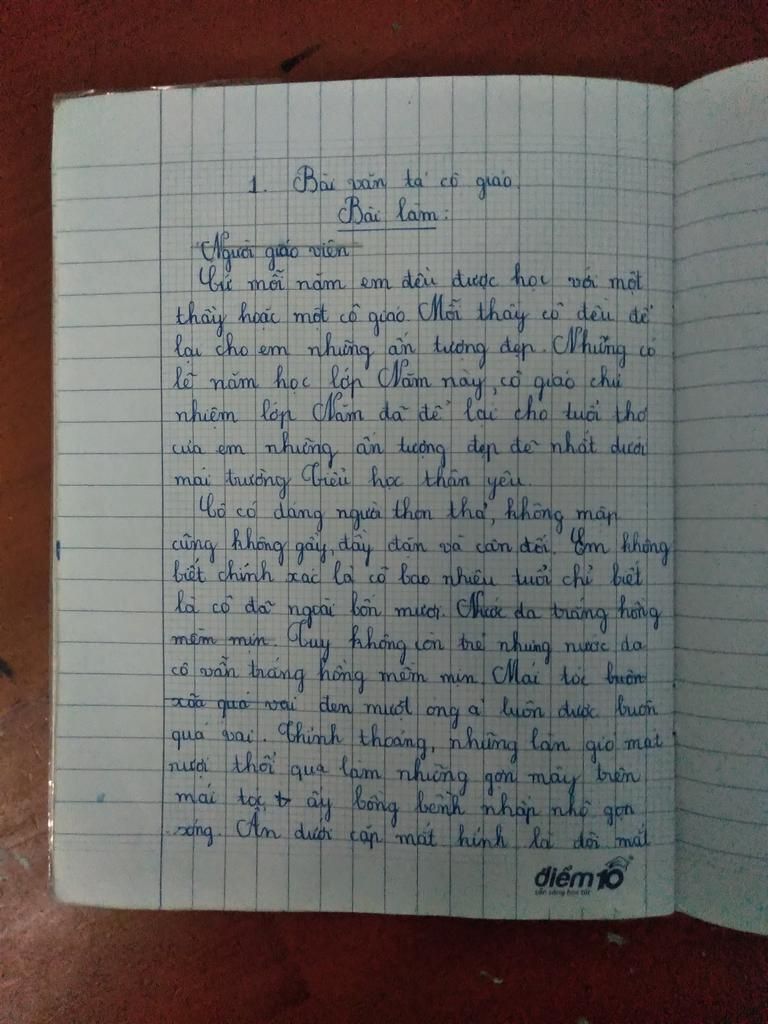 1. Bài văn tả cô giáo.
Bài làm:
Người giáo viên
Cứ mỗi năm em đều được học với một
thầy hoặc một cô giáo. Mỗi thầy cô đều để
lại cho em những ấn tượng đẹp. Nhưng có
lẽ năm học lớp Năm này, cô giáo chủ
nhiệm lớp Năm đã để lại cho tuổi thơ
của em những ấn tượng đẹp đẽ nhất dưới
mái trường Tiểu học thân yêu.
Cô có dáng người thon thả, không mập
cũng không gầy, đầy đặn và cân đối. Em không
biết chính xác là cô bao nhiêu tuổi chỉ biết
là cô đã ngoài bốn mươi. Nước da trắng hồng
mềm mịn. Tuy không còn trẻ nhưng nước da
cô vẫn trắng hồng mềm mịn. Mái tóc buôn
xõa quá vai đen mượt óng ả luôn được buôn
quá vai. Thỉnh thoảng, những làn gió mát
rượi thổi qua làm những gợn mây trên
mái tóc ấy bồng bềnh nhấp nhô gợn
sóng. Ẩn dưới cặp mắt kính là đôi mắt
điểm10
sẵn sàng học tốt